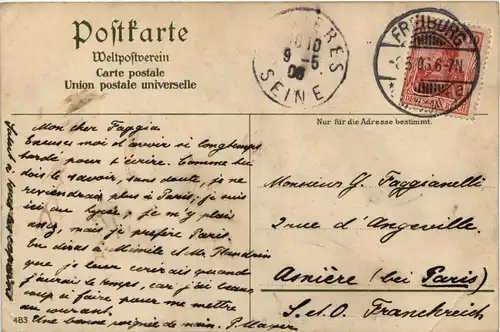 Postkarte
Weltpostverein
Carte postale
Union postale universelle
SEINE
FREIBURG
Nur für die Adresse bestimmt.
Mon cher Faggia
Excuses moi d'avoir si longtemps
tardé pour t'écrire. Comme tu
dois le savoir, sans doute, je ne
reviendrai plus à Paris, je suis
ici au lycée, je m'y plais
mais je préfère Paris.
Tu diras à Mimile et Mr. Flandrin
que je leur écrirais quand
j'aurai le temps, car j'ai beau-
coup à faire pour me mettre
au courant.
Une bonne poignée de main. P. Mayer
Monsieur G. Faggianelli
2 rue d'Angeville.
Asnière (bei Paris)
S. et O. Frankreich
483